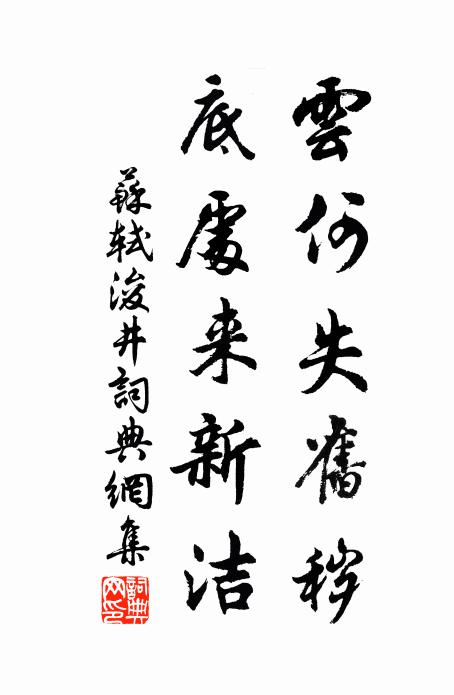 雲何失舊穢
底處来新洁
蘇軾浚井詞典網集
詞典网印